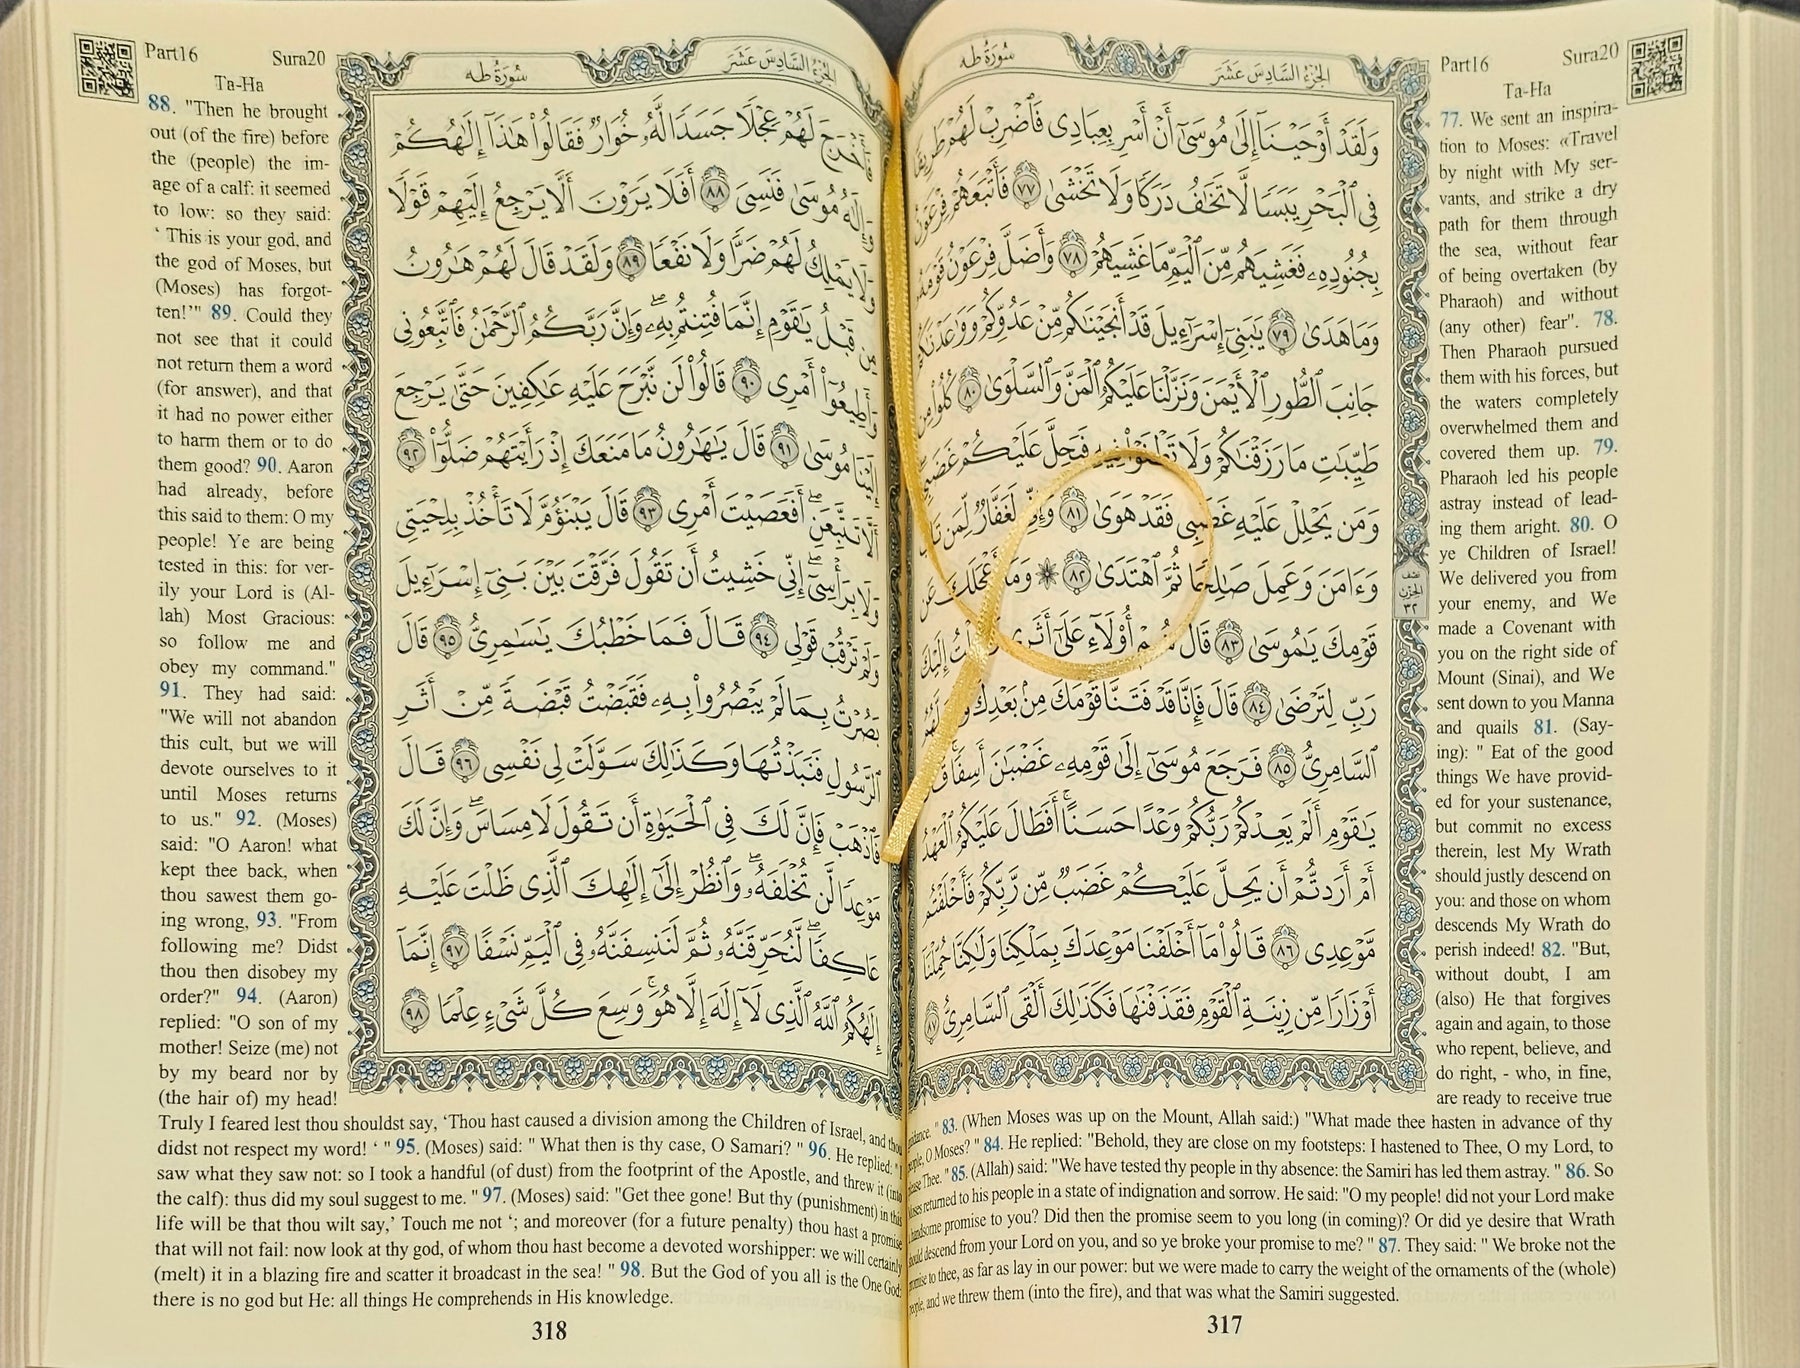 سُورَةُ طه
الجُزْءُ السَّادِسَ عَشَرَ
وَلَقَدْ أَوْحَيْنَآ إِلَىٰ مُوسَىٰٓ أَنْ أَسْرِ بِعِبَادِى فَٱضْرِبْ لَهُمْ طَرِيقًا
فِى ٱلْبَحْرِ يَبَسًا لَّا تَخَٰفُ دَرَكًا وَلَا تَخْشَىٰ ٧٧ فَأَتْبَعَهُمْ فِرْعَوْنُ
بِجُنُودِهِۦ فَغَشِيَهُم مِّنَ ٱلْيَمِّ مَا غَشِيَهُمْ ٧٨ وَأَضَلَّ فِرْعَوْنُ قَوْمَهُۥ
وَمَا هَدَىٰ ٧٩ يَٰبَنِىٓ إِسْرَٰٓءِيلَ قَدْ أَنجَيْنَٰكُم مِّنْ عَدُوِّكُمْ وَوَٰعَدْنَٰكُمْ
جَانِبَ ٱلطُّورِ ٱلْأَيْمَنَ وَنَزَّلْنَا عَلَيْكُمُ ٱلْمَنَّ وَٱلسَّلْوَىٰ ٨٠ كُلُوا۟ مِن
طَيِّبَٰتِ مَا رَزَقْنَٰكُمْ وَلَا تَطْغَوْا۟ فِيهِ فَيَحِلَّ عَلَيْكُمْ غَضَبِى
وَمَن يَحْلِلْ عَلَيْهِ غَضَبِى فَقَدْ هَوَىٰ ٨١ وَإِنِّى لَغَفَّارٌ لِّمَن تَابَ
وَءَامَنَ وَعَمِلَ صَٰلِحًا ثُمَّ ٱهْتَدَىٰ ٨٢ ۞ وَمَآ أَعْجَلَكَ عَن
قَوْمِكَ يَٰمُوسَىٰ ٨٣ قَالَ هُمْ أُو۟لَآءِ عَلَىٰٓ أَثَرِى إِلَيْكَ
رَبِّ لِتَرْضَىٰ ٨٤ قَالَ فَإِنَّا قَدْ فَتَنَّا قَوْمَكَ مِنۢ بَعْدِكَ
ٱلسَّامِرِىُّ ٨٥ فَرَجَعَ مُوسَىٰٓ إِلَىٰ قَوْمِهِۦ غَضْبَٰنَ أَسِفًا ۚ قَالَ
يَٰقَوْمِ أَلَمْ يَعِدْكُمْ رَبُّكُمْ وَعْدًا حَسَنًا ۚ أَفَطَالَ عَلَيْكُمُ ٱلْعَهْدُ
أَمْ أَرَدتُّمْ أَن يَحِلَّ عَلَيْكُمْ غَضَبٌ مِّن رَّبِّكُمْ فَأَخْلَفْتُم
مَّوْعِدِى ٨٦ قَالُوا۟ مَآ أَخْلَفْنَا مَوْعِدَكَ بِمَلْكِنَا وَلَٰكِنَّا حُمِّلْنَآ
أَوْزَارًا مِّن زِينَةِ ٱلْقَوْمِ فَقَذَفْنَٰهَا فَكَذَٰلِكَ أَلْقَى ٱلسَّامِرِىُّ ٨٧
نصف
الحزب
٣٢
Part16 Sura20
Ta-Ha
77. We sent an inspira-
tion to Moses: «Travel
by night with My ser-
vants, and strike a dry
path for them through
the sea, without fear
of being overtaken (by
Pharaoh) and without
(any other) fear". 78.
Then Pharaoh pursued
them with his forces, but
the waters completely
overwhelmed them and
covered them up. 79.
Pharaoh led his people
astray instead of lead-
ing them aright. 80. O
ye Children of Israel!
We delivered you from
your enemy, and We
made a Covenant with
you on the right side of
Mount (Sinai), and We
sent down to you Manna
and quails 81. (Say-
ing): " Eat of the good
things We have provid-
ed for your sustenance,
but commit no excess
therein, lest My Wrath
should justly descend on
you: and those on whom
descends My Wrath do
perish indeed! 82. "But,
without doubt, I am
(also) He that forgives
again and again, to those
who repent, believe, and
do right, - who, in fine,
are ready to receive true
guidance. " 83. (When Moses was up on the Mount, Allah said:) "What made thee hasten in advance of thy
people, O Moses? " 84. He replied: "Behold, they are close on my footsteps: I hastened to Thee, O my Lord, to
please Thee. " 85. (Allah) said: "We have tested thy people in thy absence: the Samiri has led them astray. " 86. So
Moses returned to his people in a state of indignation and sorrow. He said: "O my people! did not your Lord make
a handsome promise to you? Did then the promise seem to you long (in coming)? Or did ye desire that Wrath
should descend from your Lord on you, and so ye broke your promise to me? " 87. They said: " We broke not the
promise to thee, as far as lay in our power: but we were made to carry the weight of the ornaments of the (whole)
people, and we threw them (into the fire), and that was what the Samiri suggested.
317
سُورَةُ طه
الجُزْءُ السَّادِسَ عَشَرَ
فَأَخْرَجَ لَهُمْ عِجْلًا جَسَدًا لَّهُۥ خُوَارٌ فَقَالُوا۟ هَٰذَآ إِلَٰهُكُمْ
وَإِلَٰهُ مُوسَىٰ فَنَسِىَ ٨٨ أَفَلَا يَرَوْنَ أَلَّا يَرْجِعُ إِلَيْهِمْ قَوْلًا
وَلَا يَمْلِكُ لَهُمْ ضَرًّا وَلَا نَفْعًا ٨٩ وَلَقَدْ قَالَ لَهُمْ هَٰرُونُ
مِن قَبْلُ يَٰقَوْمِ إِنَّمَا فُتِنتُم بِهِۦ ۖ وَإِنَّ رَبَّكُمُ ٱلرَّحْمَٰنُ فَٱتَّبِعُونِى
وَأَطِيعُوٓا۟ أَمْرِى ٩٠ قَالُوا۟ لَن نَّبْرَحَ عَلَيْهِ عَٰكِفِينَ حَتَّىٰ يَرْجِعَ
إِلَيْنَا مُوسَىٰ ٩١ قَالَ يَٰهَٰرُونُ مَا مَنَعَكَ إِذْ رَأَيْتَهُمْ ضَلُّوٓا۟ ٩٢
أَلَّا تَتَّبِعَنِ ۖ أَفَعَصَيْتَ أَمْرِى ٩٣ قَالَ يَبْنَؤُمَّ لَا تَأْخُذْ بِلِحْيَتِى
وَلَا بِرَأْسِىٓ ۖ إِنِّى خَشِيتُ أَن تَقُولَ فَرَّقْتَ بَيْنَ بَنِىٓ إِسْرَٰٓءِيلَ
وَلَمْ تَرْقُبْ قَوْلِى ٩٤ قَالَ فَمَا خَطْبُكَ يَٰسَٰمِرِىُّ ٩٥ قَالَ
بَصُرْتُ بِمَا لَمْ يَبْصُرُوا۟ بِهِۦ فَقَبَضْتُ قَبْضَةً مِّنْ أَثَرِ
ٱلرَّسُولِ فَنَبَذْتُهَا وَكَذَٰلِكَ سَوَّلَتْ لِى نَفْسِى ٩٦ قَالَ
فَٱذْهَبْ فَإِنَّ لَكَ فِى ٱلْحَيَوٰةِ أَن تَقُولَ لَا مِسَاسَ ۖ وَإِنَّ لَكَ
مَوْعِدًا لَّن تُخْلَفَهُۥ ۖ وَٱنظُرْ إِلَىٰٓ إِلَٰهِكَ ٱلَّذِى ظَلْتَ عَلَيْهِ
عَاكِفًا ۖ لَّنُحَرِّقَنَّهُۥ ثُمَّ لَنَنسِفَنَّهُۥ فِى ٱلْيَمِّ نَسْفًا ٩٧ إِنَّمَآ
إِلَٰهُكُمُ ٱللَّهُ ٱلَّذِى لَآ إِلَٰهَ إِلَّا هُوَ ۚ وَسِعَ كُلَّ شَىْءٍ عِلْمًا ٩٨
Part16 Sura20
Ta-Ha
88. "Then he brought
out (of the fire) before
the (people) the im-
age of a calf: it seemed
to low: so they said:
‘ This is your god, and
the god of Moses, but
(Moses) has forgot-
ten!’" 89. Could they
not see that it could
not return them a word
(for answer), and that
it had no power either
to harm them or to do
them good? 90. Aaron
had already, before
this said to them: O my
people! Ye are being
tested in this: for ver-
ily your Lord is (Al-
lah) Most Gracious:
so follow me and
obey my command."
91. They had said:
"We will not abandon
this cult, but we will
devote ourselves to it
until Moses returns
to us." 92. (Moses)
said: "O Aaron! what
kept thee back, when
thou sawest them go-
ing wrong, 93. "From
following me? Didst
thou then disobey my
order?" 94. (Aaron)
replied: "O son of my
mother! Seize (me) not
by my beard nor by
(the hair of) my head!
Truly I feared lest thou shouldst say, ‘Thou hast caused a division among the Children of Israel, and thou
didst not respect my word! ‘ " 95. (Moses) said: " What then is thy case, O Samari? " 96. He replied: "
saw what they saw not: so I took a handful (of dust) from the footprint of the Apostle, and threw it (into
the calf): thus did my soul suggest to me. " 97. (Moses) said: "Get thee gone! But thy (punishment) in this
life will be that thou wilt say,’ Touch me not ‘; and moreover (for a future penalty) thou hast a promise
that will not fail: now look at thy god, of whom thou hast become a devoted worshipper: we will certainly
(melt) it in a blazing fire and scatter it broadcast in the sea! " 98. But the God of you all is the One God:
there is no god but He: all things He comprehends in His knowledge.
318